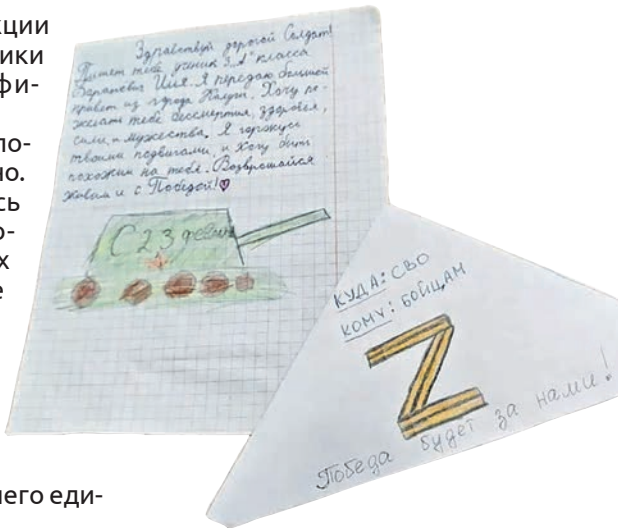 кции
ики
фи-
ло-
но.
сь
о-
х
е
него еди-
Здравствуй дорогой Солдат!
Пишет тебе ученик 3„А" класса
Илья. Я передаю большой
привет из города Калуги. Хочу по-
желать тебе бессмертия, здоровья,
силы, и мужества. Я горжусь
твоими подвигами, и хочу быть
похожим на тебя. Возвращайся
живым и с Победой!
С 23 февраля
КУДА: СВО
КОМУ: БОЙЦАМ
Z
Победа будет за нами!